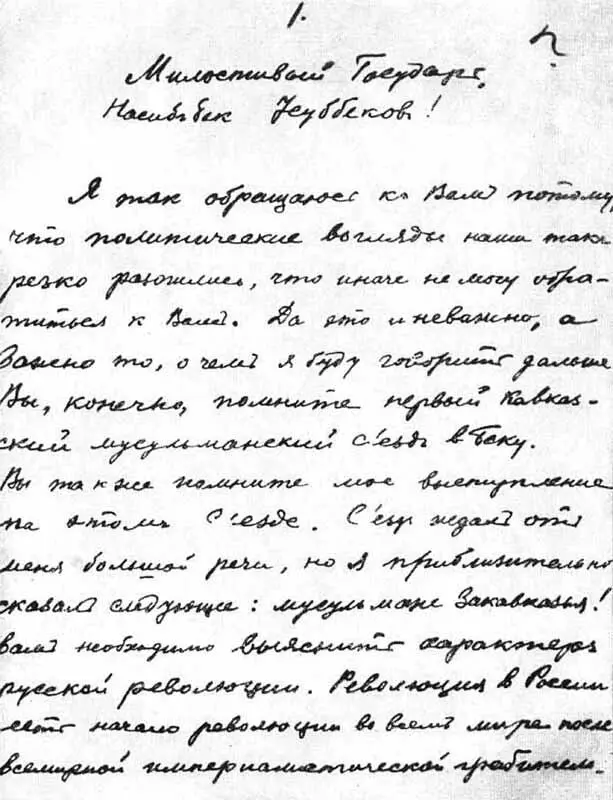 1.
Милостивый Государь,
Насиб бек Усуббеков!
Я так обращаюс к Вамъ потому,
что политические взгляды наши такъ
резко разошлись, что иначе не могу обра-
титься к Вамъ. Да это и неважно, а
Важно то, о чемъ я буду говорить дальше
Вы, конечно, помните первый Кавказ-
ский мусульманский с'ездъ в Баку.
Вы также помните мое выступление
на этомъ С'езде. С'езд ждалъ отъ
меня большой речи, но я приблизительно
сказалъ следующее: мусульмане Закавказья!
вамъ необходимо выяснить характеръ
русской революции. Революция в России
есть начало революции во всемъ мире после
всемирной империалистической грабитель-